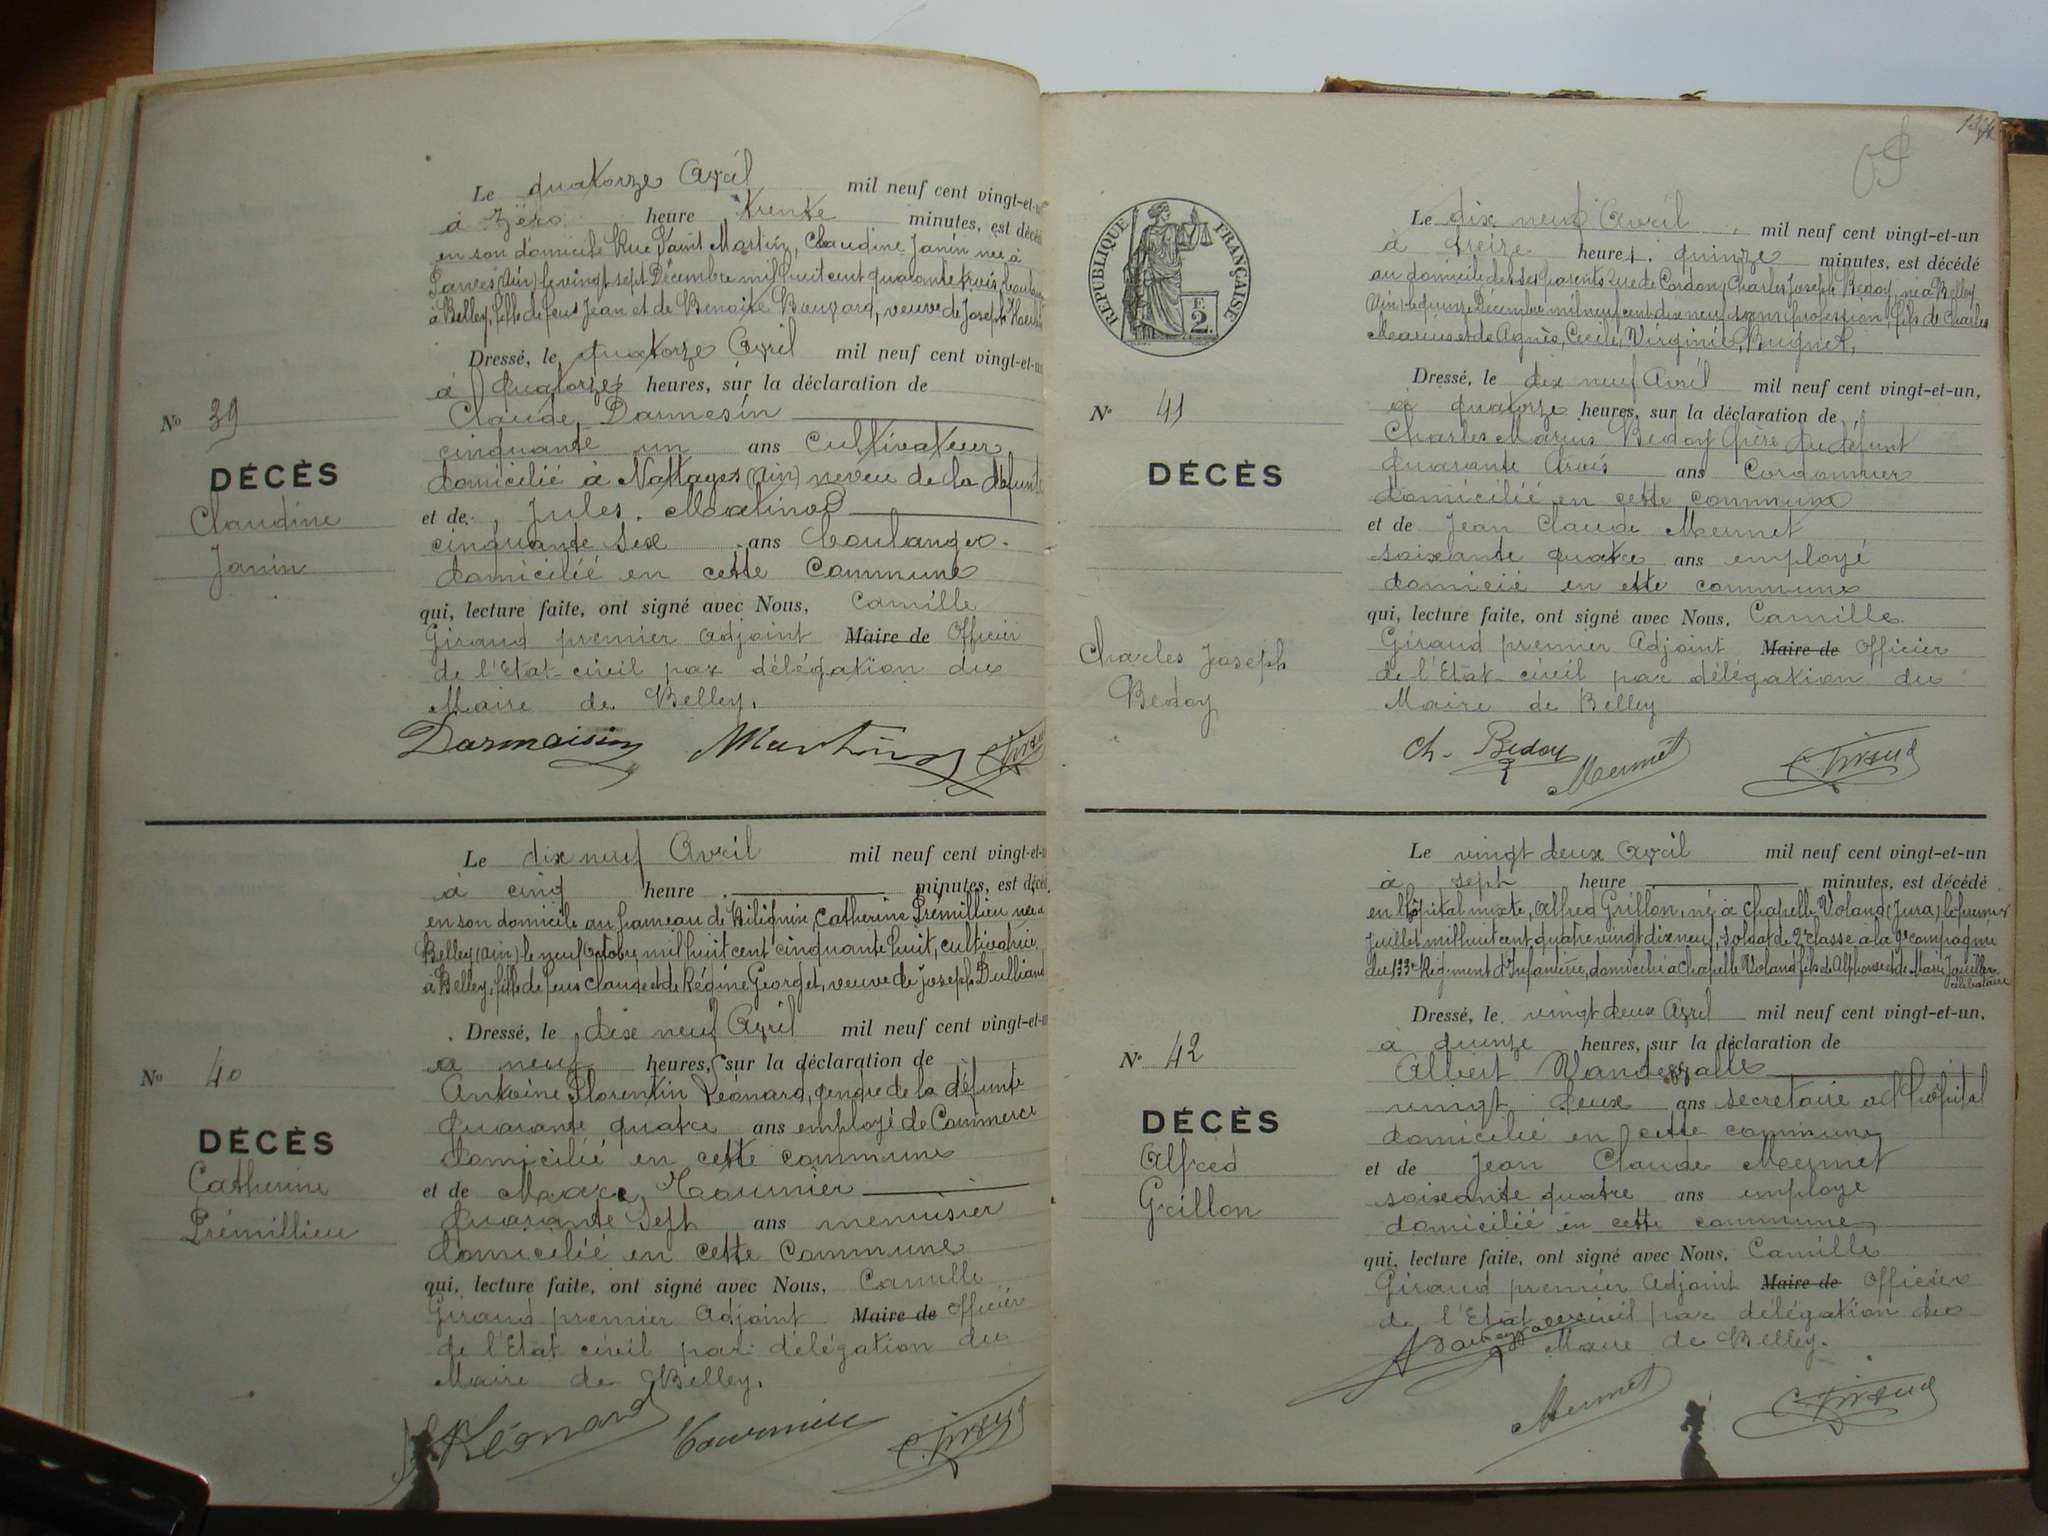 Le quatorze Avril mil neuf cent vingt-et-u
à zéro heure trente minutes, est décéd
en son domicile Rue Saint Martin, Claudine Janin née à
(Ain) le vingt sept Décembre mil huit cent quarante trois,
à Belley, fille de feus Jean et de Benoite veuve de Joseph
Dressé, le quatorze Avril mil neuf cent vingt-et-u
à quatorze heures, sur la déclaration de
Claude Darmesin
cinquante un ans Cultivateur
domicilié à Nattages (Ain) neveu de la défunte
et de Jules Martinod
cinquante six ans boulanger.
domicilié en cette Commune
qui, lecture faite, ont signé avec Nous, Camille
Giraud premier Adjoint Maire de Officier
de l'Etat-civil par délégation du
Maire de Belley.
Darmaisin Martinod
No 39
DÉCÈS
Claudine
Janin
Le dix neuf Avril mil neuf cent vingt-et-u
à cinq heure minutes, est décéd
en son domicile au hameau de Bilignin, Catherine Prémillieu née à
Belley (Ain) le neuf Octobre mil huit cent cinquante huit, cultivatrice
à Belley, fille de feus Claude et de Régine Georget, veuve de Joseph Gulliand
Dressé, le dix neuf Avril mil neuf cent vingt-et-u
à neuf heures, sur la déclaration de
Antoine Florentin Léonard, gendre de la défunte
quarante quatre ans employé de Commerce
domicilié en cette commune
et de Marc Tournier
quarante sept ans menuisier
domicilié en cette Commune
qui, lecture faite, ont signé avec Nous, Camille
Giraud premier Adjoint Maire de Officier
de l'Etat civil par délégation du
Maire de Belley.
Léonard Tournier C. Giraud
No 40
DÉCÈS
Catherine
Prémillieu
RÉPUBLIQUE FRANÇAISE
F.
2.
Le dix neuf Avril mil neuf cent vingt-et-un
à treize heure quinze minutes, est décédé
au domicile de ses parents Rue de Cordon, Charles Joseph Bedoy, né à Belley
(Ain) le quinze Décembre mil neuf cent dix neuf, sans profession, fils de Charles
Marius et de Agnès, Cécile, Virginie, Bugnet.
Dressé, le dix neuf Avril mil neuf cent vingt-et-un,
à quatorze heures, sur la déclaration de
Charles Marius Bedoy père du défunt
quarante trois ans Cordonnier
domicilié en cette commune
et de Jean Claude Mermet
soixante quatre ans employé
domicié en ette commune
qui, lecture faite, ont signé avec Nous, Camille
Giraud premier Adjoint Maire de Officier
de l'Etat civil par délégation du
Maire de Belley
Ch. Bedoy Mermet C. Giraud
No 41
DÉCÈS
Charles Joseph
Bedoy
Le vingt deux Avril mil neuf cent vingt-et-un
à sept heure minutes, est décédé
en l'hôpital mixte, Alfred Grillon, né à Chapelle Voland (Jura) le premier
Juillet mil huit cent quatre vingt dix neuf, soldat de 2e classe à la 9e compagnie
du 133e Régiment d'Infanterie, domicilié à Chapelle Voland fils de Alphonse et de Marie
célibataire
Dressé, le vingt deux Avril mil neuf cent vingt-et-un,
à quinze heures, sur la déclaration de
Albert
vingt deux ans secretaire a l'hôpital
domicilié en cette commune
et de Jean Claude Mermet
soixante quatre ans employé
domicilié en cette commune
qui, lecture faite, ont signé avec Nous, Camille
Giraud premier Adjoint Maire de Officier
de l'Etat civil par délégation du
Maire de Belley.
Mermet C. Giraud
No 42
DÉCÈS
Alfred
Grillon